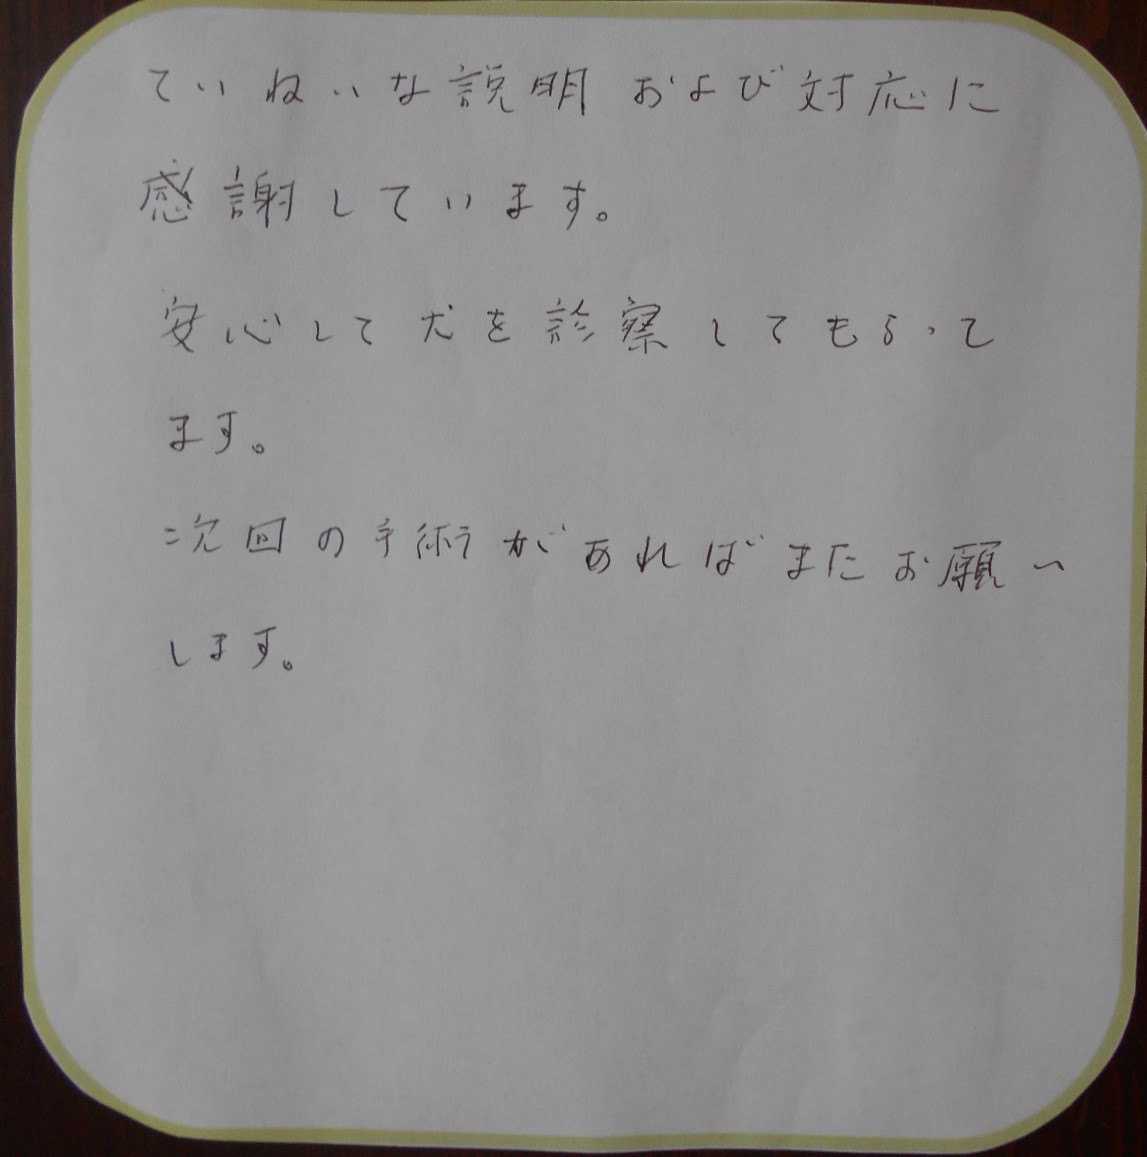 ていねいな説明および対応に
感謝しています。
安心して犬を診察してもらって
ます。
次回の手術があればまたお願い
します。